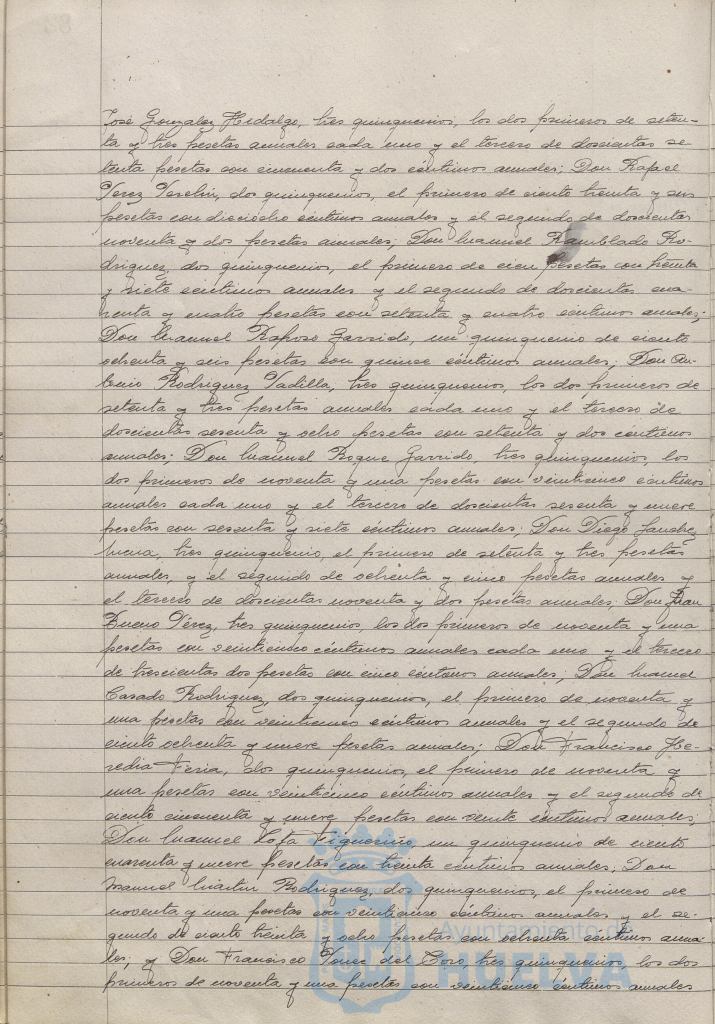 José Gonzalez Hidalgo, tres quinquenios, los dos primeros de seten-
ta y tres pesetas anuales cada uno y el tercero de doscientas se-
tenta pesetas con cincuenta y dos céntimos anuales; Don Rafael
Perez, dos quinquenios, el primero de ciento treinta y seis
pesetas con dieciocho céntimos anuales y el segundo de doscientas
noventa y dos pesetas anuales; Don Manuel Ramblado Ro-
driguez, dos quinquenios, el primero de cien pesetas con treinta
y siete céntimos anuales y el segundo de doscientas cua-
renta y cuatro pesetas con setenta y cuatro céntimos anuales;
Don Manuel Raposo Garrido, un quinquenio de ciento
ochenta y seis pesetas con quince céntimos anuales; Don An-
tonio Rodriguez Vadillo, tres quinquenios, los dos primeros de
setenta y tres pesetas anuales cada uno y el tercero de
doscientas sesenta y ocho pesetas con setenta y dos céntimos
anuales; Don Manuel Roque Garrido, tres quinquenios, los
dos primeros de noventa y una pesetas con veinticinco céntimos
anuales cada uno y el tercero de doscientas sesenta y nueve
pesetas con sesenta y siete céntimos anuales; Don Diego Sanchez
tres quinquenio, el primero de setenta y tres pesetas
anuales, y el segundo de ochenta y cinco pesetas anuales y
el tercero de doscientas noventa y dos pesetas anuales; Don Juan
Bueno Pérez, tres quinquenios los dos primeros de noventa y una
pesetas con veinticinco céntimos anuales cada uno y el tercero
de trescientas dos pesetas con cinco céntimos anuales; Don Manuel
Casado Rodriguez, dos quinquenios, el primero de noventa y
una pesetas con veinticinco céntimos anuales y el segundo de
ciento ochenta y nueve pesetas anuales; Don Francisco He-
redia Feria, dos quinquenios, el primero de noventa y
una pesetas con veinticinco céntimos anuales y el segundo de
ciento cincuenta y nueve pesetas con veinte céntimos anuales;
Don Manuel un quinquenio de ciento
cuarenta y nueve pesetas con treinta céntimos anuales; Don
Manuel Martin Rodriguez, dos quinquenios, el primero de
noventa y una pesetas con veinticinco céntimos anuales y el se-
gundo de ciento treinta y ocho pesetas con ochenta céntimos anua-
les; y Don Francisco Ponce del Toro, tres quinquenios, los dos
primeros de noventa y una pesetas con veinticinco céntimos anuales
Ayuntamiento de
HUELVA